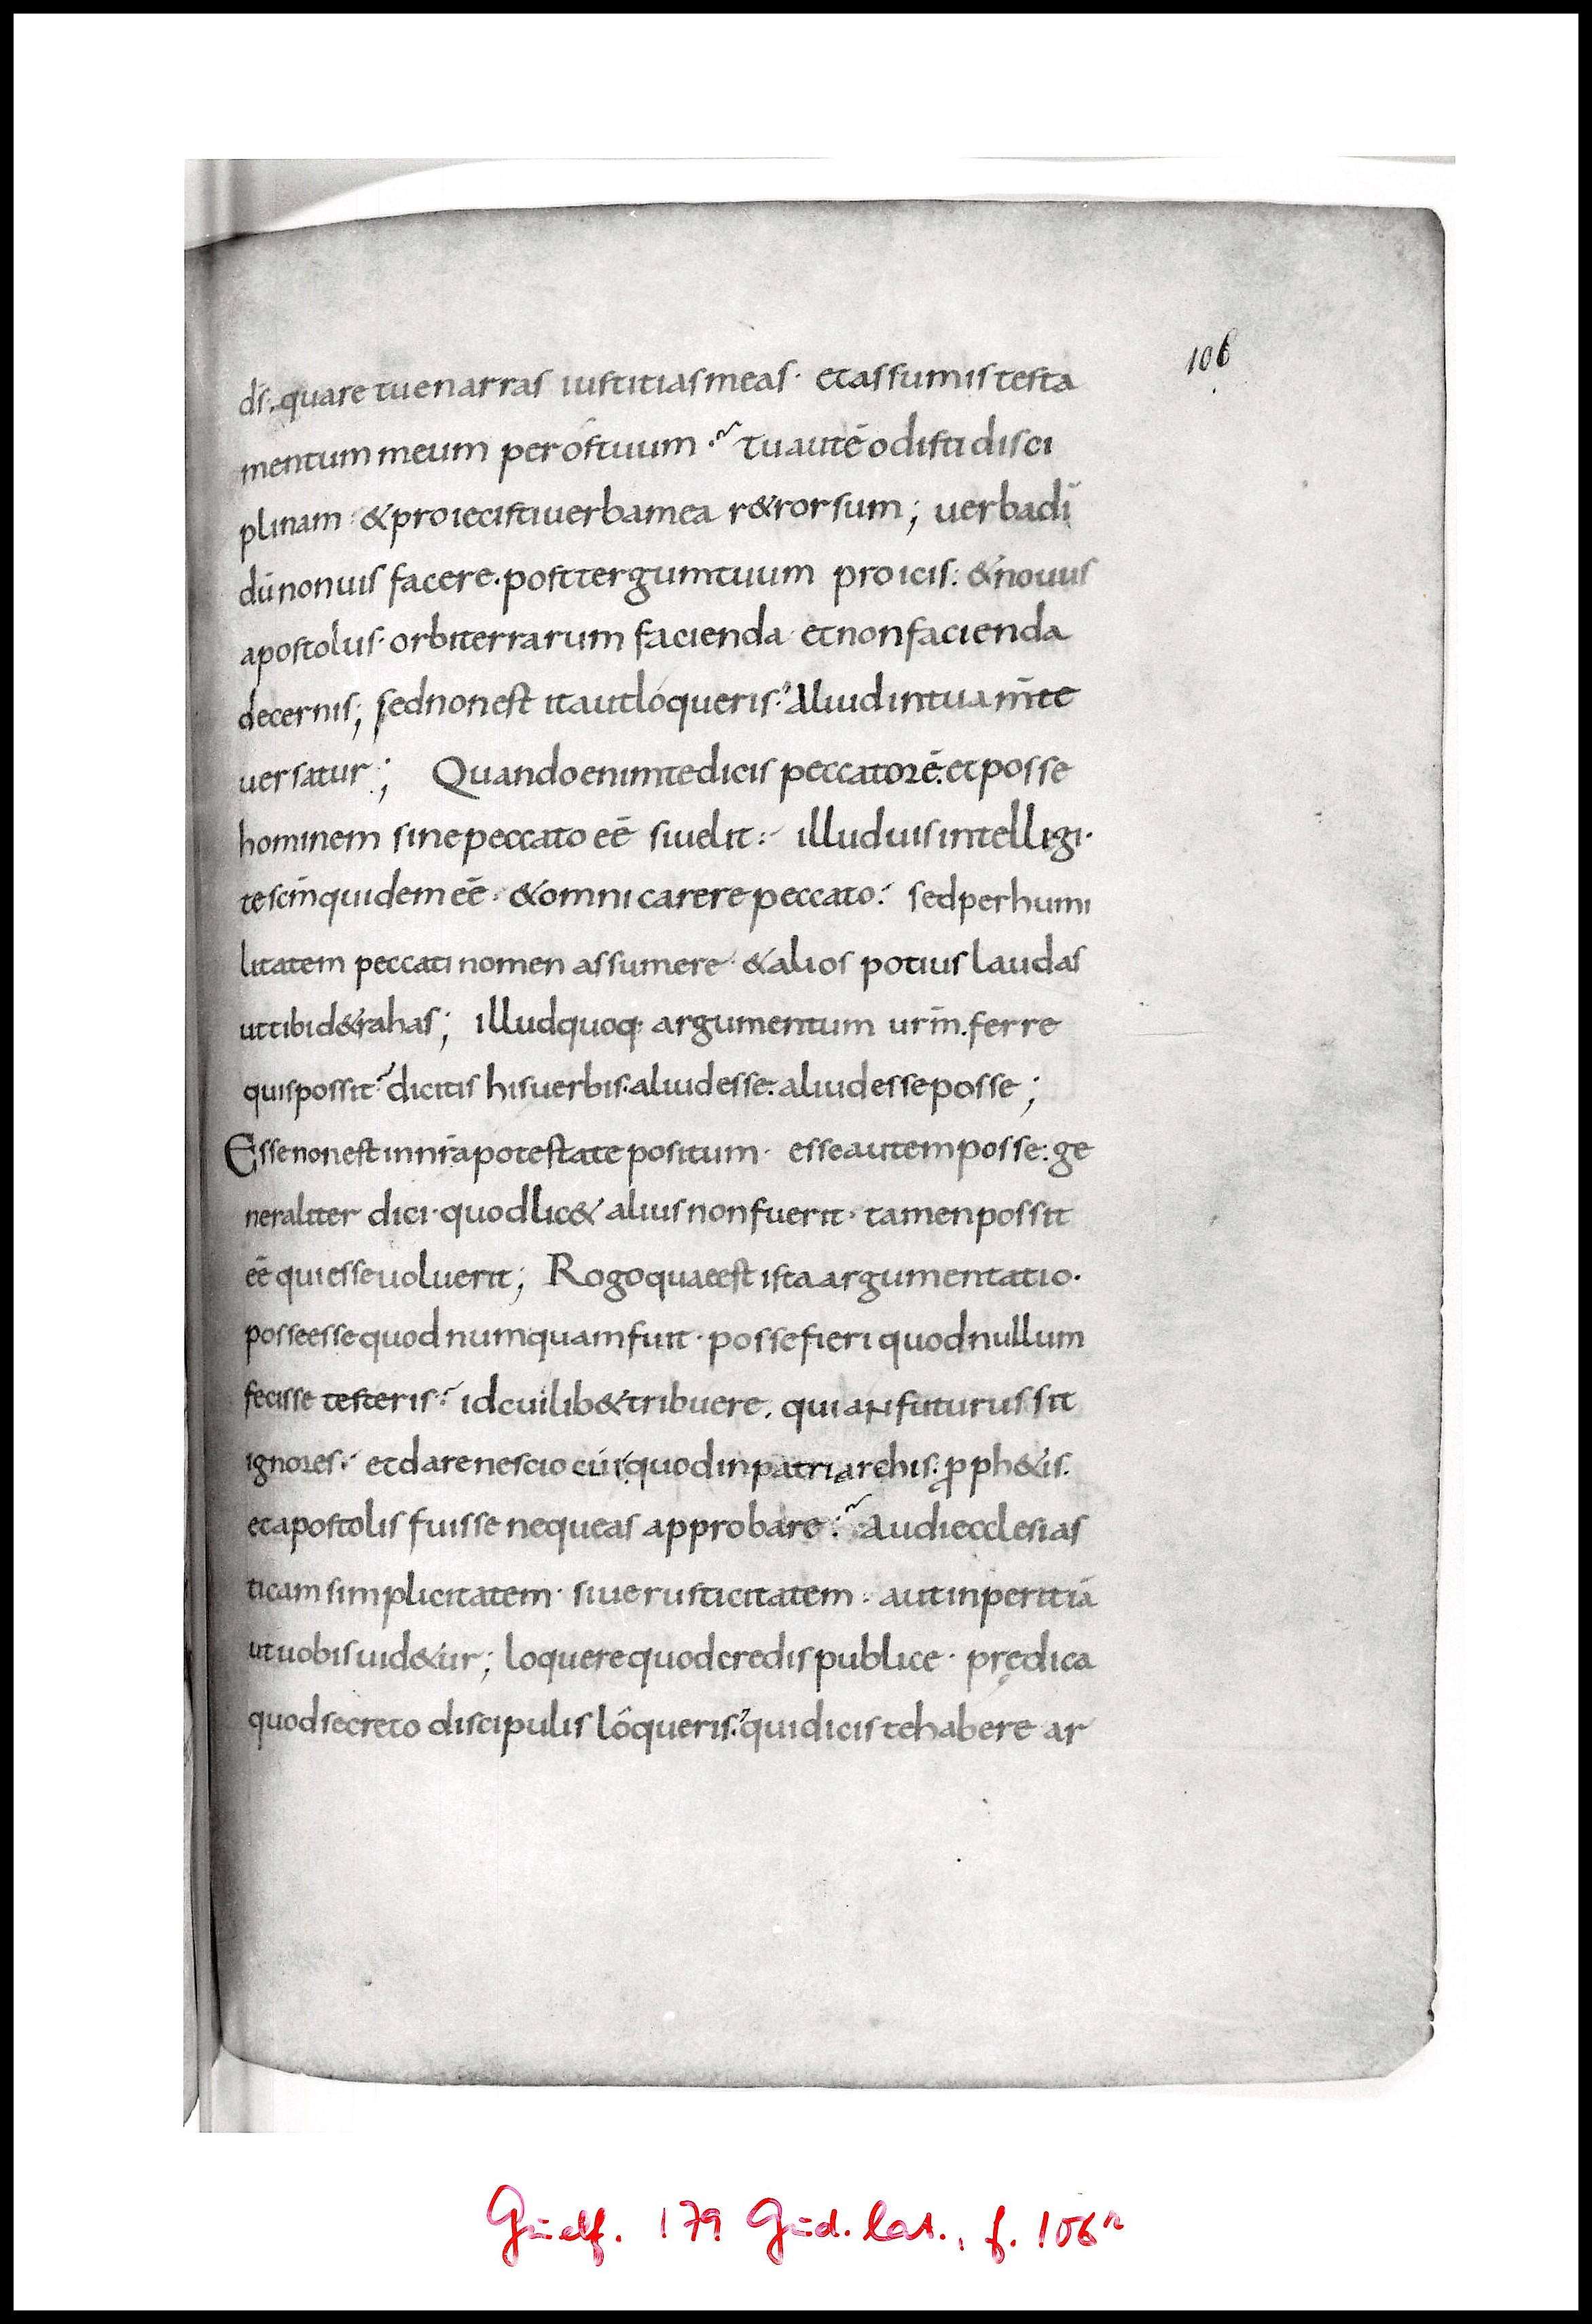 106
d̄s. quare tu enarras iustitias meas · et assumis testa
mentum meum per os tuum · Tu autē odisti disci
plinam · & proiecisti uerba mea r&rorsum; uerba dī
dū non uis facere · post tergum tuum proicis: & nouus
apostolus · orbi terrarum facienda · et non facienda
decernis; sed non est ita ut loqueris: Aliud in tua m̄te
uersatur; Quando enim te dicis peccatorē: et posse
hominem sine peccato eē si uelit: illud uis intelligi ·
te sc̄m quidem eē · & omni carere peccato: sed per humi
litatem peccati nomen assumere · & alios potius laudas
ut tibi d&rahas; illud quoq· argumentum ur̄m. ferre
quis possit? dicitis his uerbis. aliud esse: aliud esse posse;
Esse non est in nr̄a potestate positum · esse autem posse: ge
neraliter dici · quod lic& alius non fuerit · tamen possit
eē qui esse uoluerit; Rogo quae est ista argumentatio ·
posse esse quod numquam fuit · posse fieri quod nullum
fecisse testeris: id cuilib& tribuere. qui an futurus sit
ignores: et dare nescio cui: quod in patriarchis. p̱ph&is.
et apostolis fuisse nequeas approbare: Audi ecclesias
ticam simplicitatem · siue rusticitatem · aut inperitiā
ut uobis uid&ur; loquere quod credis publice · prędica
quod secreto discipulis loqueris: qui dicis te habere ar
Guelf. 179 Gud. lat., f. 106r